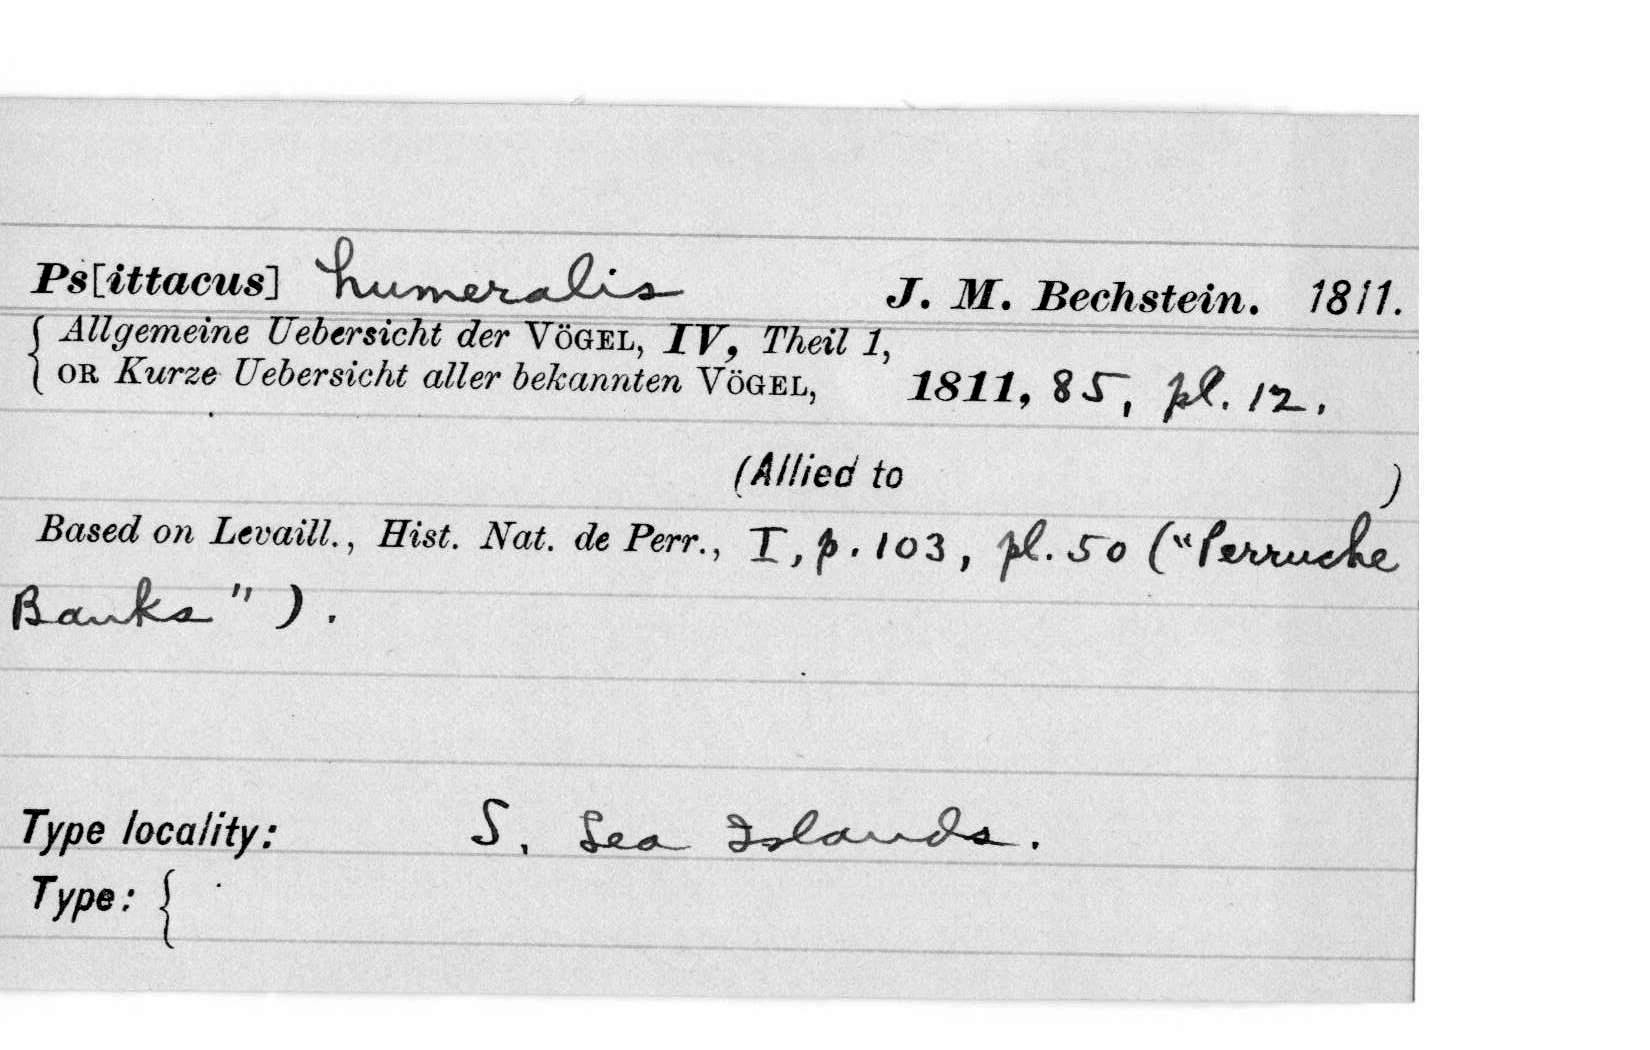 Ps[ittacus] humeralis J. M. Bechstein. 1811.
{ Allgemeine Uebersicht der VÖGEL, IV, Theil 1,
OR Kurze Uebersicht aller bekannten VÖGEL, 1811, 85, pl. 12.
(Allied to )
Based on Levaill., Hist. Nat. de Perr., I, p. 103, pl. 50 ("Perruche
Banks").
Type locality: S. Sea Islands.
Type: {